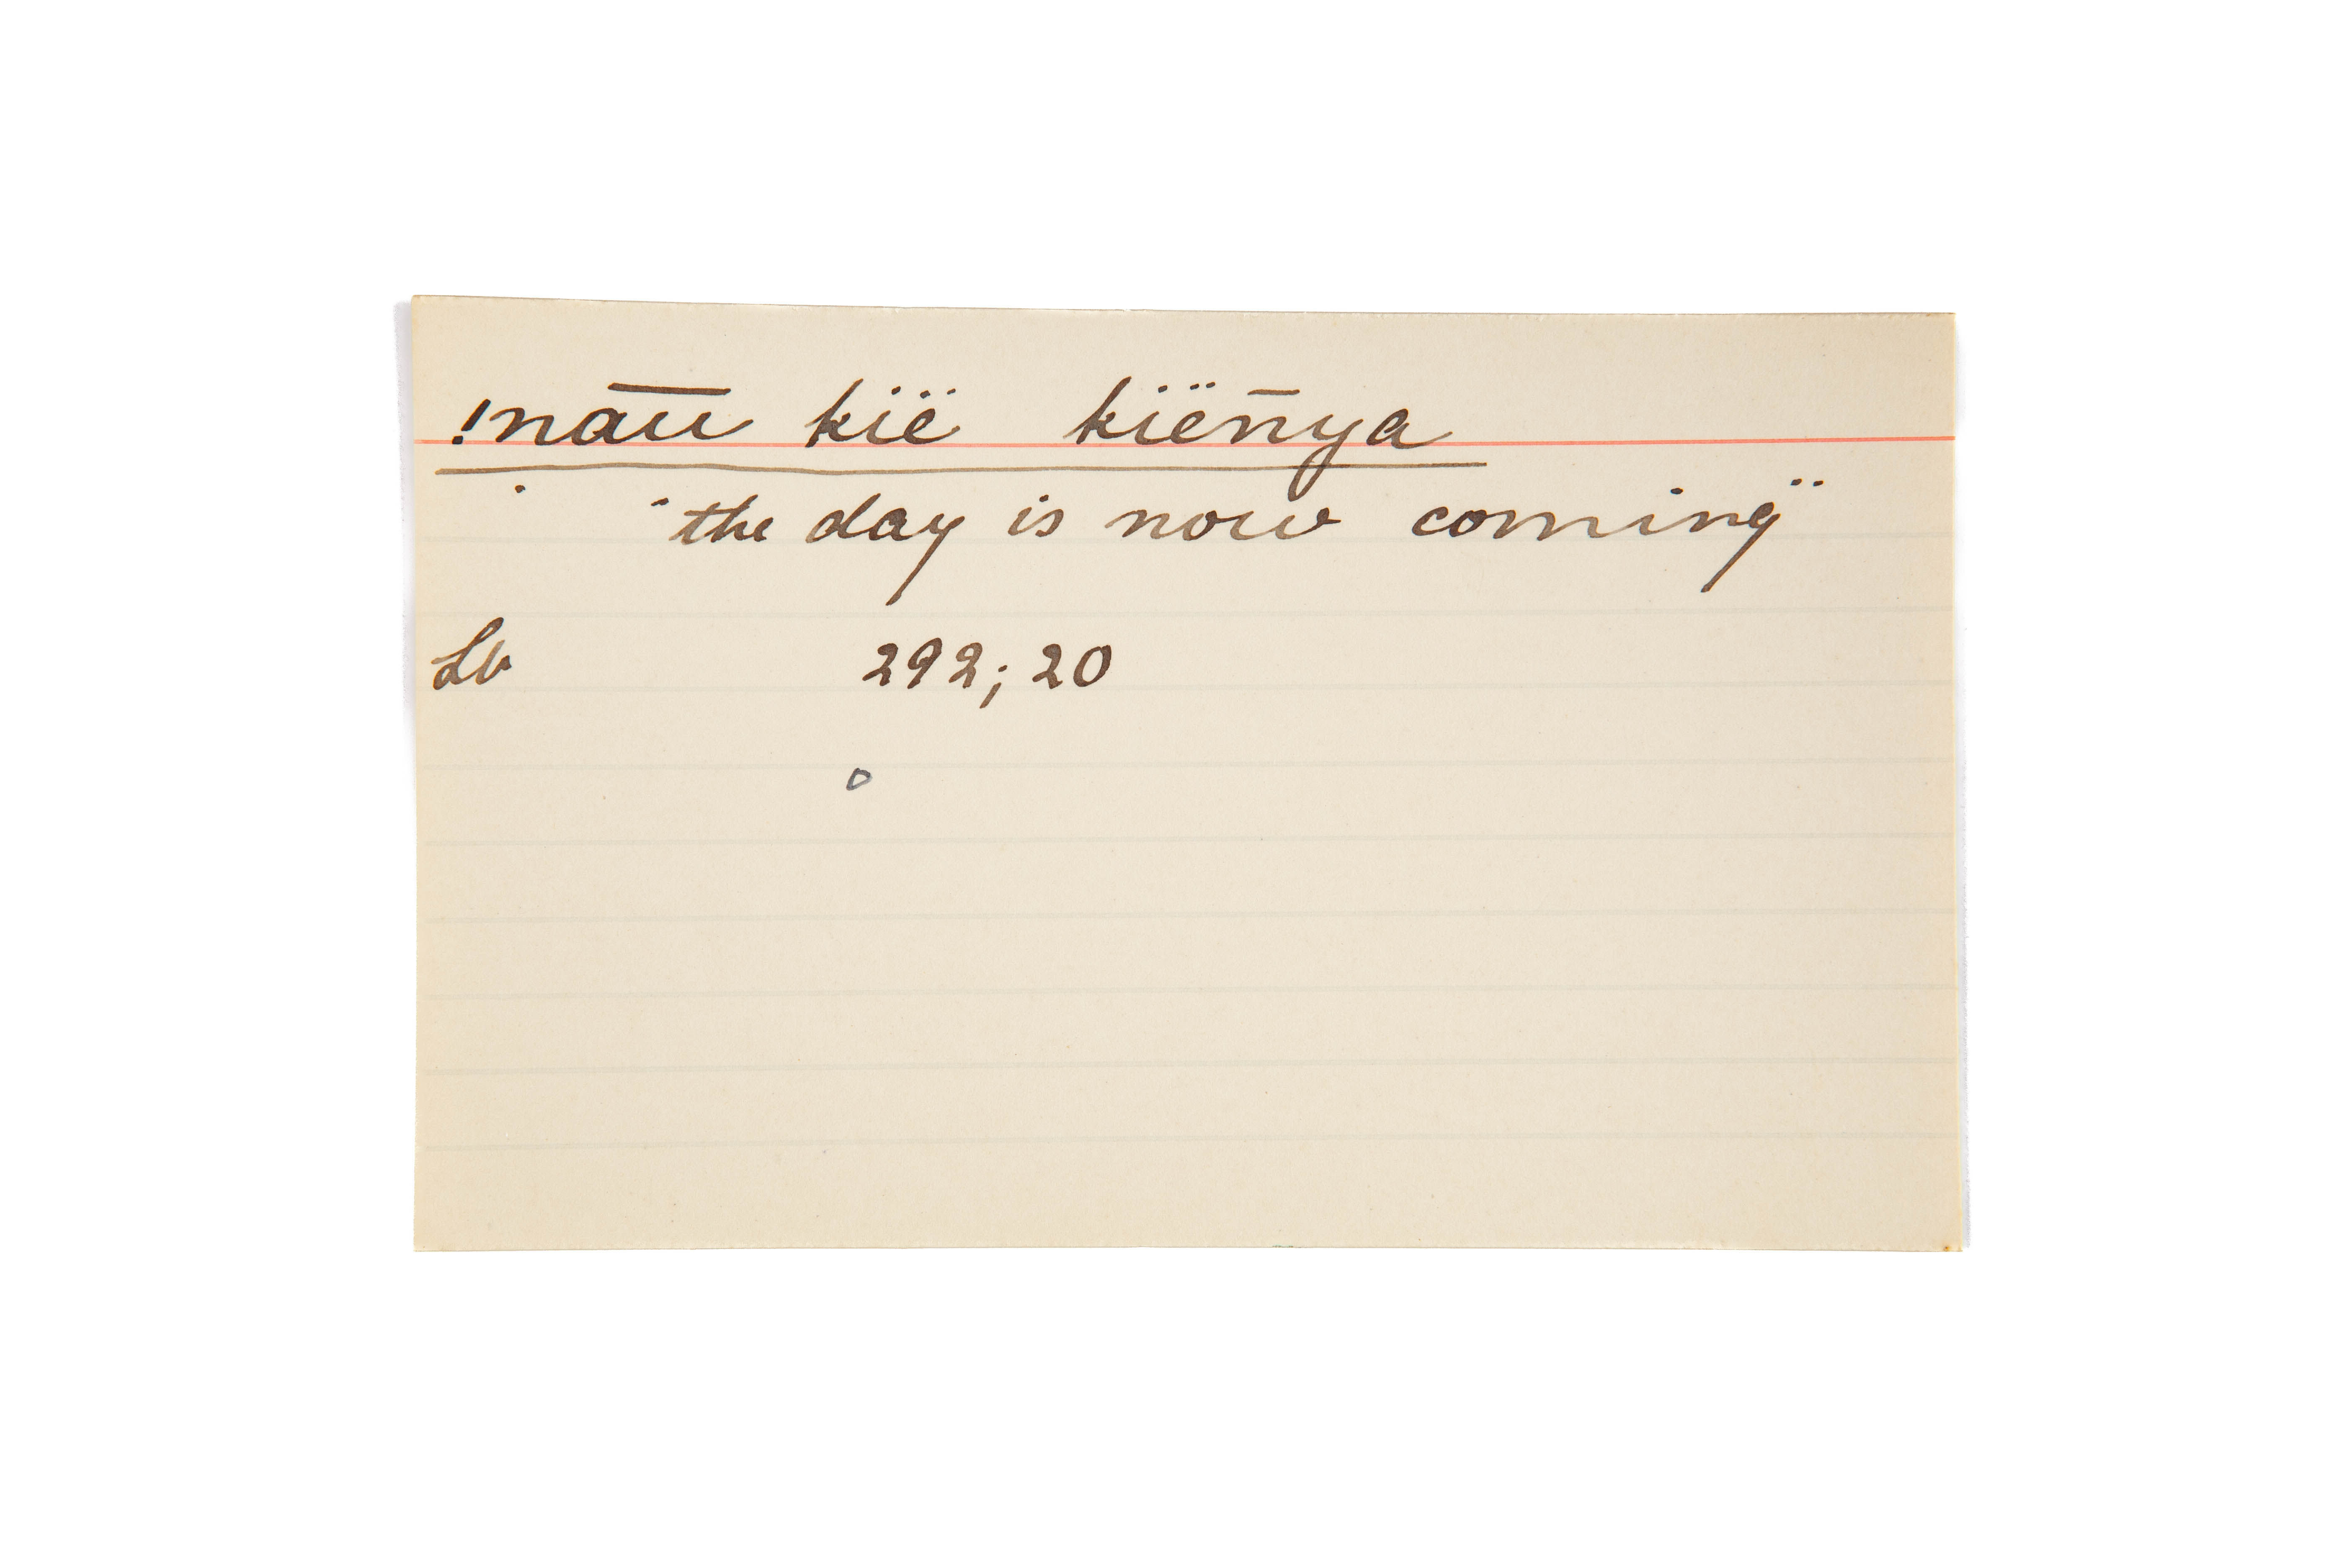 !na͞u kië kiën̄ya
"the day is now coming"
Lb 292; 20